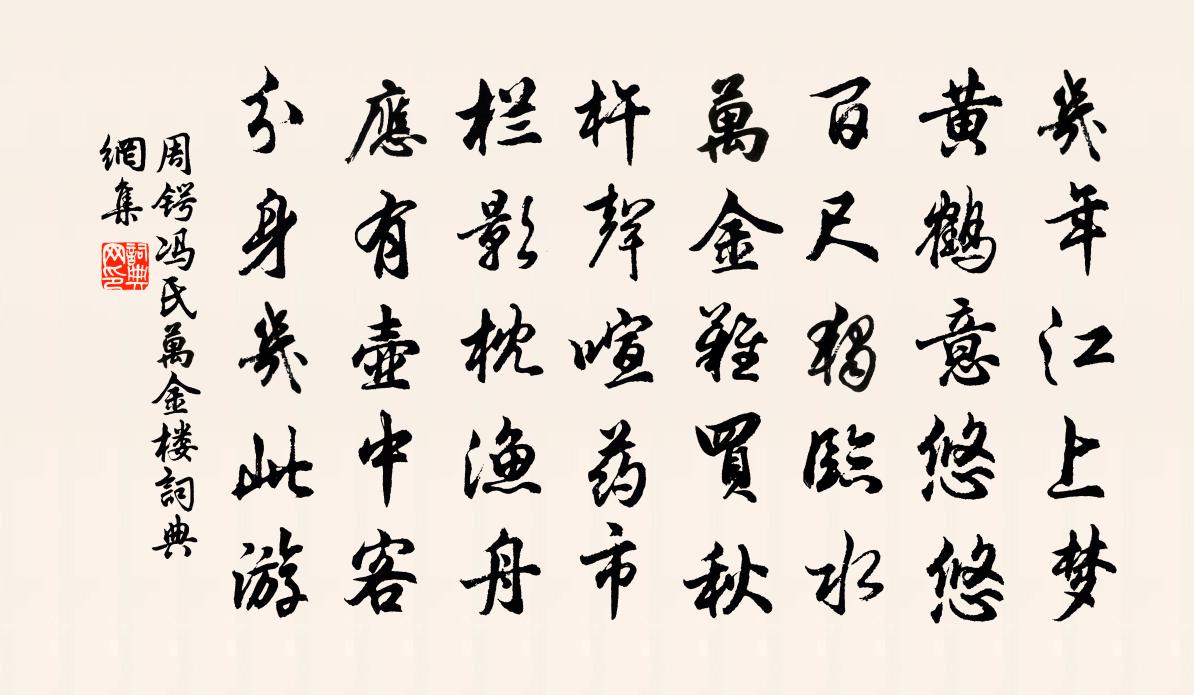 幾年江上梦
黄鶴意悠悠
百尺獨臨水
萬金難買秋
杵聲喧药市
栏影枕漁舟
應有壷中客
分身幾此游
周锷冯氏萬金楼詞典
網集
詞典网印